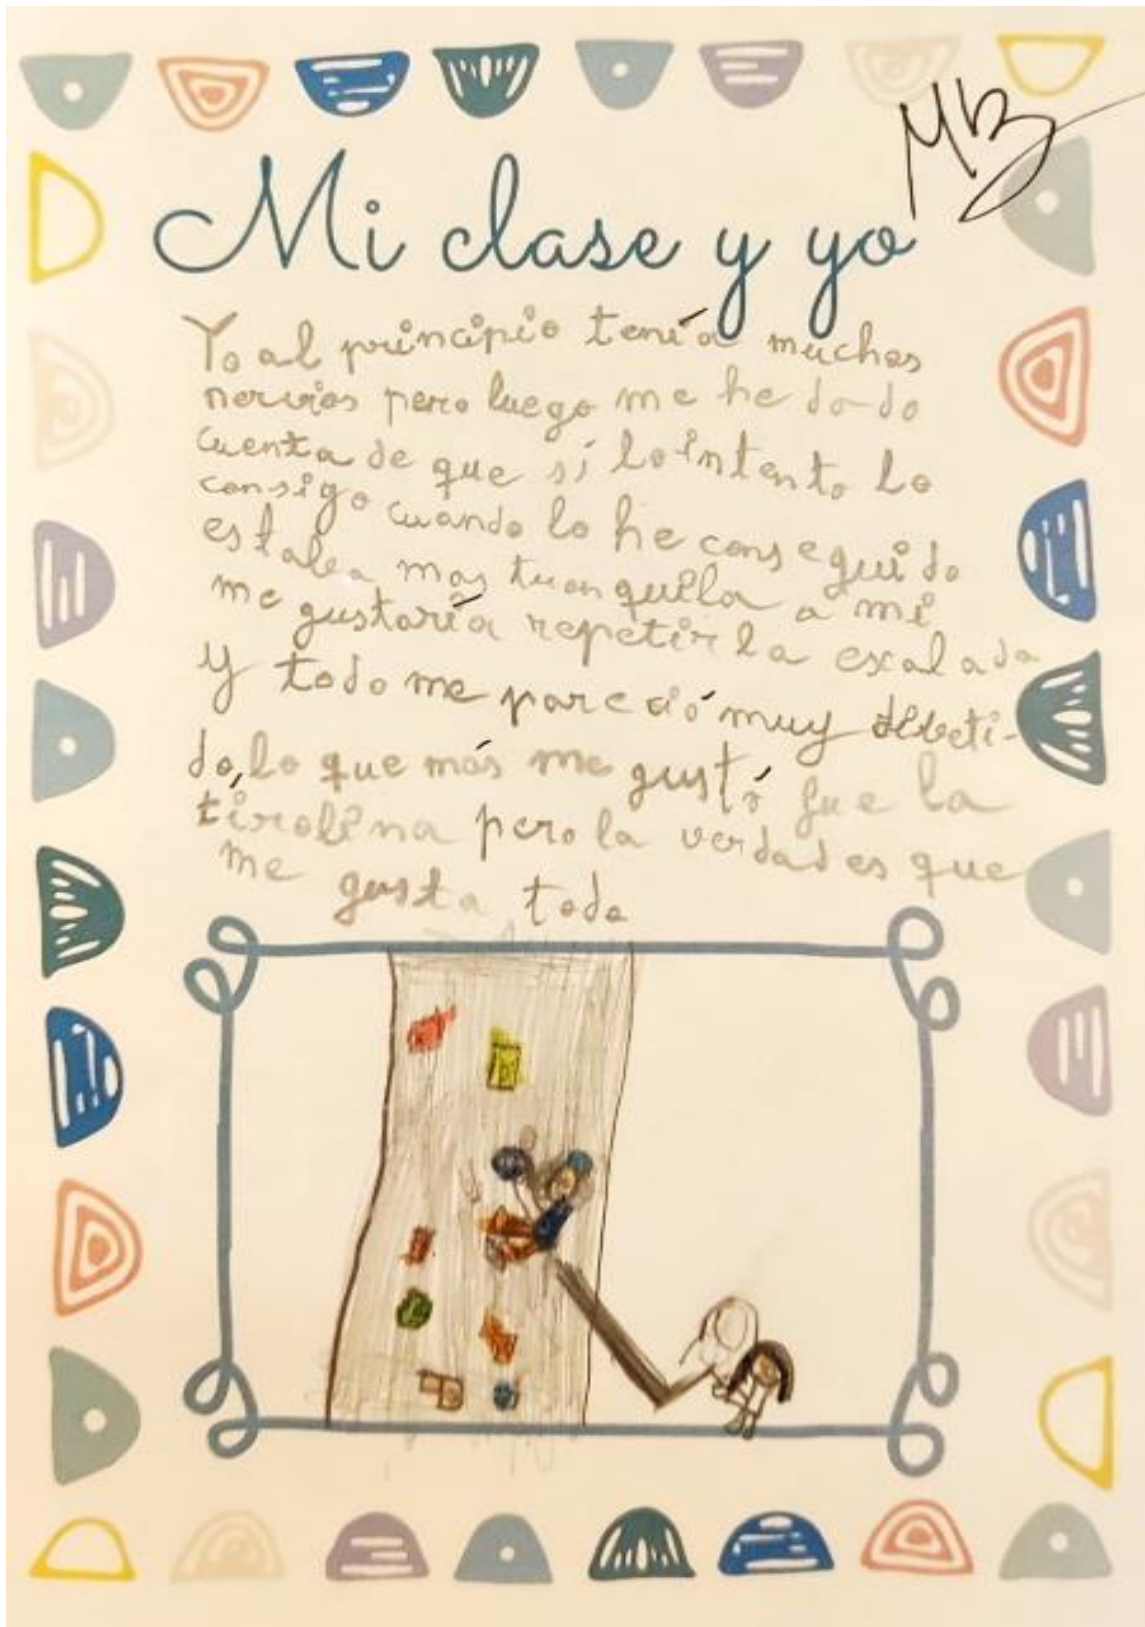 MB
Mi clase y yo
Yo al principio tenía muchos
nervios pero luego me he dado
cuenta de que sí lo intento lo
consigo cuando lo he conseguido
estaba mas tranquila a mi
me gustaría repetir la escalada
y todo me pareció muy dibeti-
do, lo que más me gustó fue la
tirolina pero la verdad es que
me gusta todo